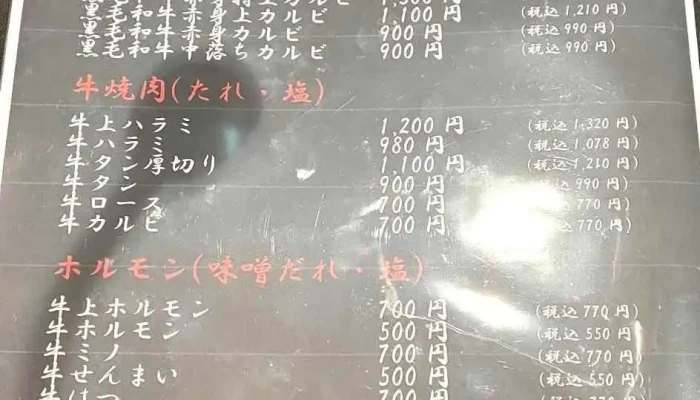 黒毛和牛赤身上カルビ 1,100 円 (税込 1,210 円)
黒毛和牛赤身カルビ 900 円 (税込 990 円)
黒毛和牛中落ちカルビ 900 円 (税込 990 円)
牛焼肉(たれ・塩)
牛上ハラミ 1,200 円 (税込 1,320 円)
牛ハラミ 980 円 (税込 1,078 円)
牛タン厚切り 1,100 円 (税込 1,210 円)
牛タン 900 円 (税込 990 円)
牛ロース 700 円 (税込 770 円)
牛カルビ 700 円 (税込 770 円)
ホルモン(味噌だれ・塩)
牛上ホルモン 700 円 (税込 770 円)
牛ホルモン 500 円 (税込 550 円)
牛ミノ 700 円 (税込 770 円)
牛せんまい 500 円 (税込 550 円)
牛はつ 700 円